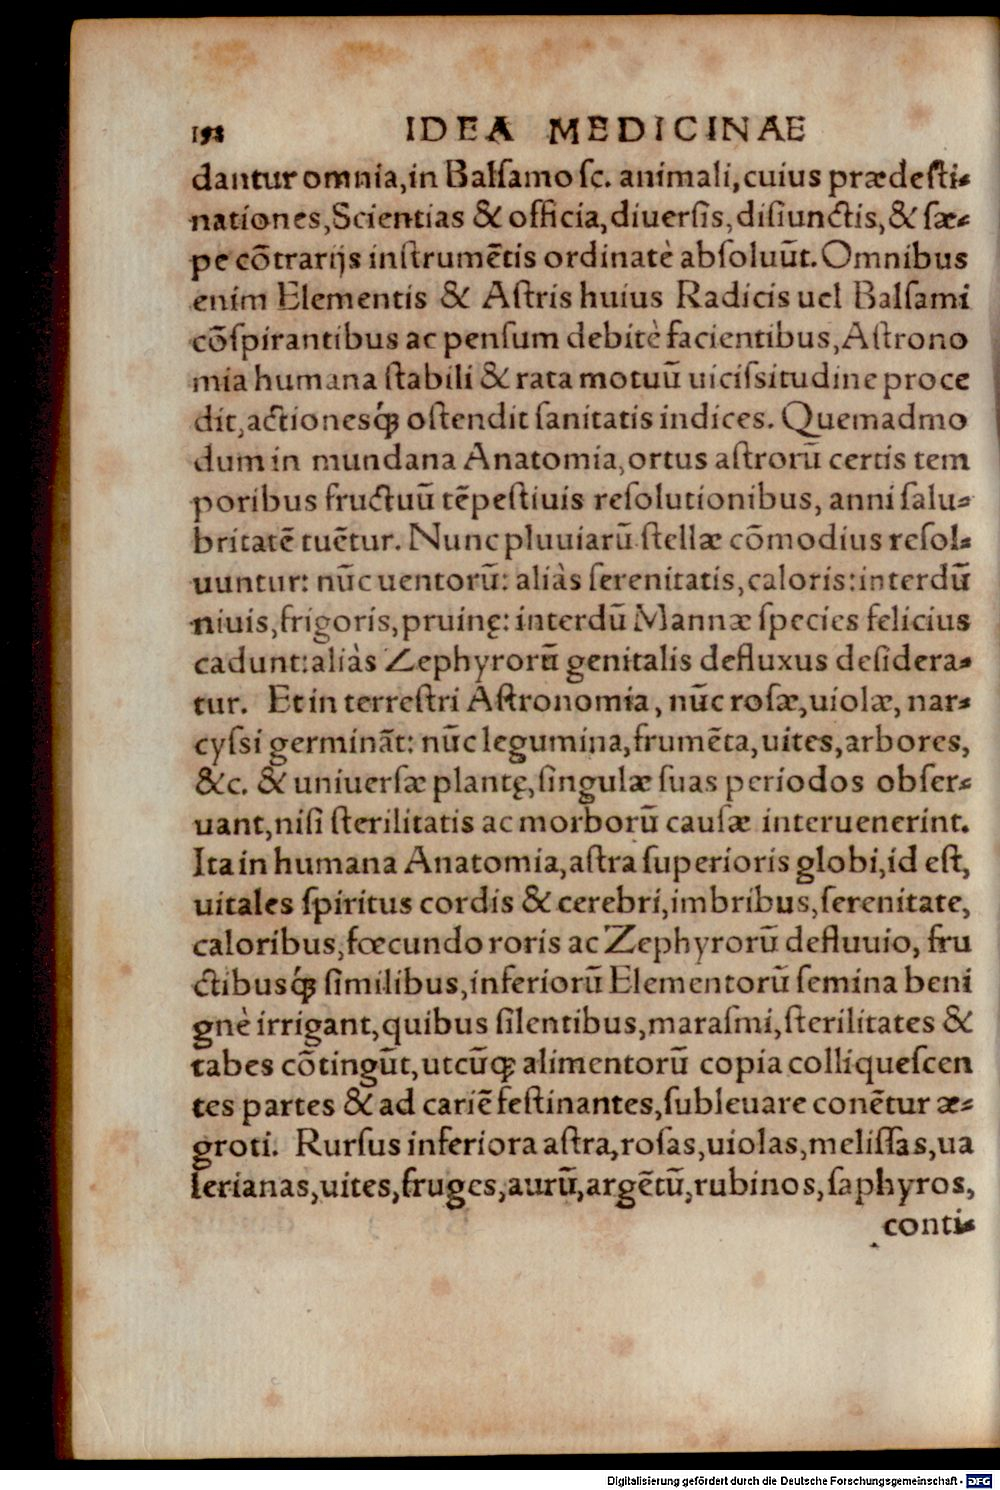 198 IDEA MEDICINAE
dantur omnia, in Balſamo ſc. animali, cuius prædeſti-
nationes, Scientias & officia, diuerſis, diſiunctis, & ſæ-
pe cõtrarijs inſtrumẽtis ordinatè abſoluũt. Omnibus
enim Elementis & Aſtris huius Radicis uel Balſami
cõſpirantibus ac penſum debitè facientibus, Aſtrono
mia humana ſtabili & rata motuũ uiciſsitudine proce
dit, actionesq́; oſtendit ſanitatis indices. Quemadmo
dum in mundana Anatomia, ortus aſtrorũ certis tem
poribus fructuũ tẽpeſtiuis reſolutionibus, anni ſalu-
britatẽ tuẽtur. Nunc pluuiarũ ſtellæ cõmodius reſol-
uuntur: nũc uentorũ: aliàs ſerenitatis, caloris: interdũ
niuis, frigoris, pruinę: interdũ Mannæ ſpecies felicius
cadunt: aliàs Zephyrorũ genitalis defluxus deſidera-
tur. Et in terreſtri Aſtronomia, nũc roſæ, uiolæ, nar-
cyſsi germinãt: nũc legumina, frumẽta, uites, arbores,
&c. & uniuerſæ plantę, ſingulæ ſuas periodos obſer-
uant, niſi ſterilitatis ac morborũ cauſæ interuenerint.
Ita in humana Anatomia, aſtra ſuperioris globi, id eſt,
uitales ſpiritus cordis & cerebri, imbribus, ſerenitate,
caloribus, fœcundo roris ac Zephyrorũ defluuio, fru
ctibusq́; ſimilibus, inferiorũ Elementorũ ſemina beni
gnè irrigant, quibus ſilentibus, maraſmi, ſterilitates &
tabes cõtingũt, utcũq; alimentorũ copia colliqueſcen
tes partes & ad cariẽ feſtinantes, ſubleuare conẽtur æ-
groti. Rurſus inferiora aſtra, roſas, uiolas, meliſſas, ua
lerianas, uites, fruges, aurũ, argẽtũ, rubinos, ſaphyros,
conti-
Digitalisierung gefördert durch die Deutsche Forschungsgemeinschaft - DFG